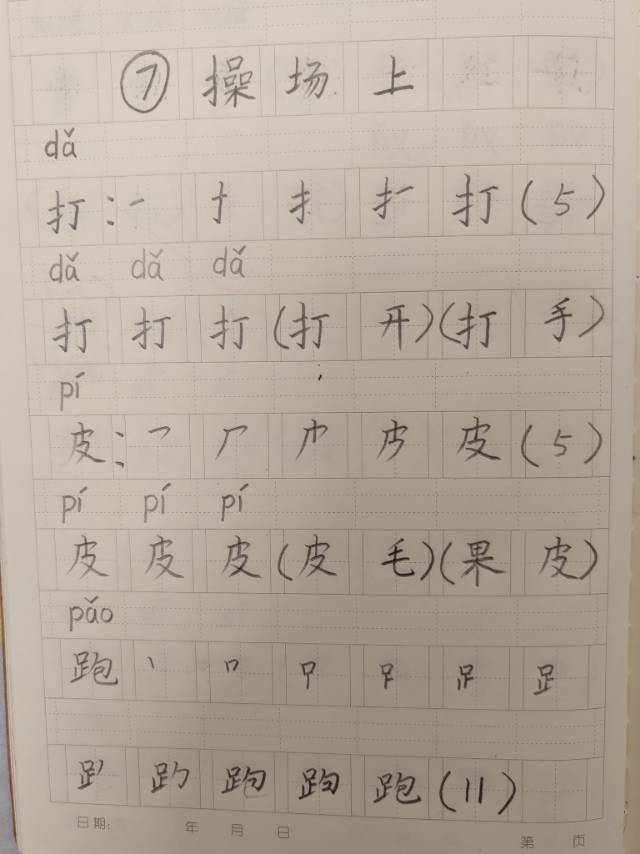 ⑦ 操场上
dǎ
打：一 十 扌 扌一 打(5)
dǎ dǎ dǎ
打 打 打(打开)(打手)
pí
皮：㇇ 厂 皮(5)
pí pí pí
皮 皮 皮(皮毛)(果皮)
pǎo
跑 丶 口
跑(11)
日期: 年 月 日
第 页